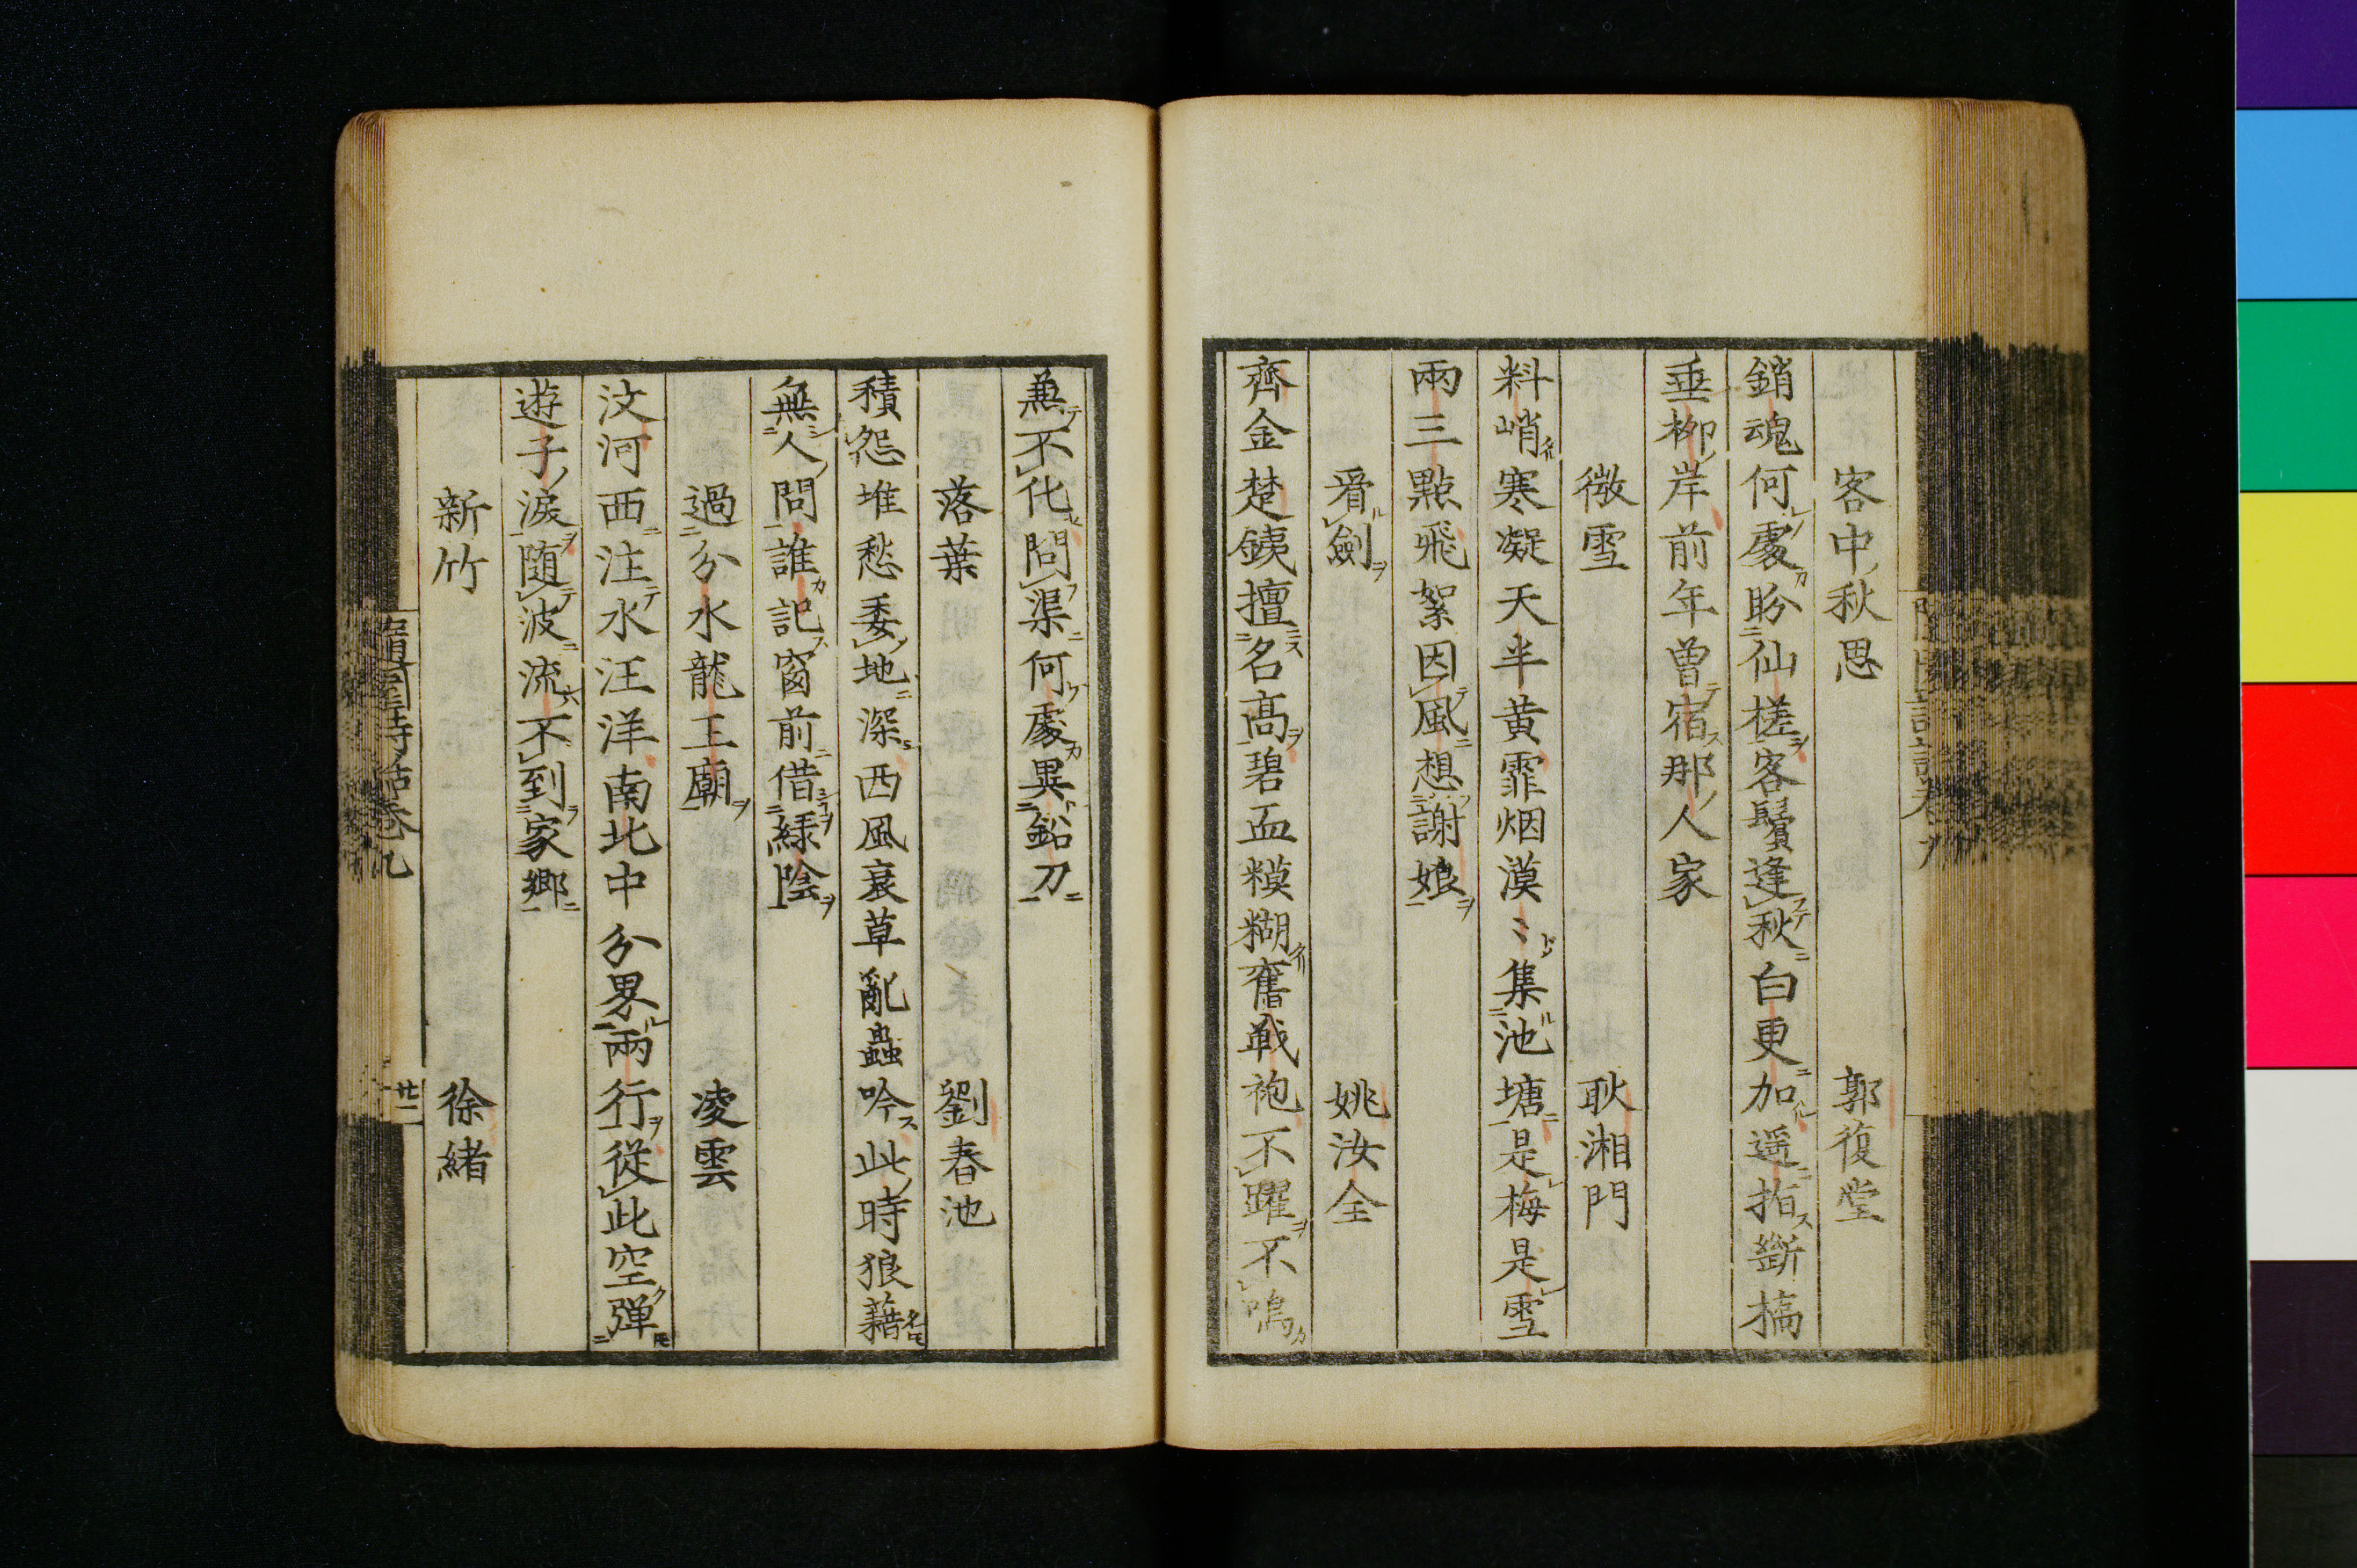 客中秋思 郭復堂
銷魂何處盼仙槎客鬢逢秋白更加遥指斷橋
垂柳岸前年曽宿那人家
微雪 耿湘門
料峭寒凝天半黄霏烟漠〻集池塘是梅是雪
兩三點飛絮因風想謝娘
看劍 姚汝全
齊金楚鐵擅名高碧血糢糊舊戰袍不躍不鳴
無不化問渠何處異鉛刀
落葉 劉春池
積怨堆愁委地深西風衰草亂蟲吟此時狼藉
無人問誰記窗前借緑陰
過分水龍王廟 凌雲
汶河西注水汪洋南北中分界兩行從此空彈
遊子淚随波流不到家郷
新竹 徐緒
隨園詩話卷九
廿一